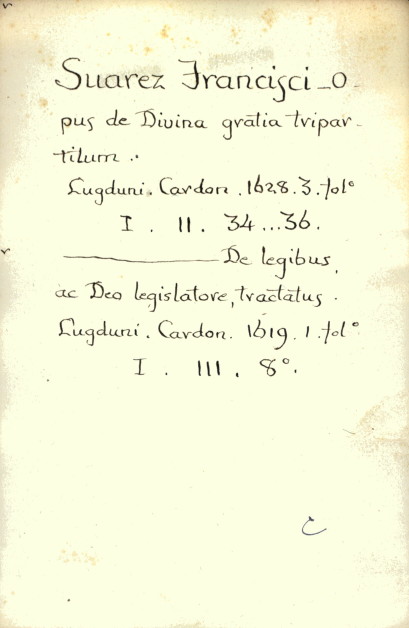 Suarez Francisci _o_
pus de Divina gratia tripar_
titum .
Lugduni. Cardon . 1628. 3. folº
I . II . 34...36.
——— De legibus,
ac Deo legislatore, tractatus .
Lugduni . Cardon. 1619. 1. folº
I . III . 8º.
C